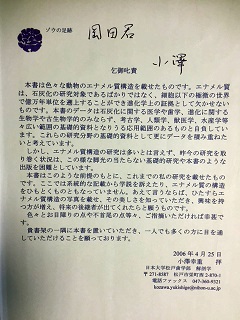 ゾウの足跡
園田君
小澤
乞御叱責
本書は色々な動物のエナメル質構造を載せたものです。エナメル質
は、石灰化の研究対象であるばかりではなく、細胞以下の極微の世界
で億万年単位を遡上することができ進化学上の証拠として欠かせない
ものです。本書のデータは石灰化に関する医学や生物学、進化に関する
生物学や古生物学的のみならず、考古学、人類学、獣医学、水産学等
々広い範囲の基礎的資料となりうる応用範囲のあるものと自負してい
ます。これらの研究分野の基礎的資料として更にデータを積み重ねた
いと考えています。
しかし、エナメル質構造の研究は多いとは言えず、昨今の研究を取
り巻く状況は、この様な脚光の当たらない基礎的研究や本書のような
出版を困難としています。
本書はこのような前提のもとに、これまでの私の研究を載せたもの
です。ここでは系統的な記載から学説を訴えたり、エナメル質の構造を
ひもとくものともなっていません。あえて言うならば、ひたすらエ
ナメル質構造の写真を載せ、その美しさを知っていただき、興味を持つ
方が増え、将来の後継者が出てくれたらと願うものです。
色々とお目障りの点や不首尾の点等々、ご指摘いただければ幸甚で
す。
貴書架の一隅に本書を置いていただき、一人でも多くの方に目を通
していただけることを願っております。
2006 年 4 月 25 日
小澤幸重 拝
日本大学松戸歯学部 解剖学
〒271-8587 松戸市栄町西 2-870-1
電話ファックス 047-360-9321